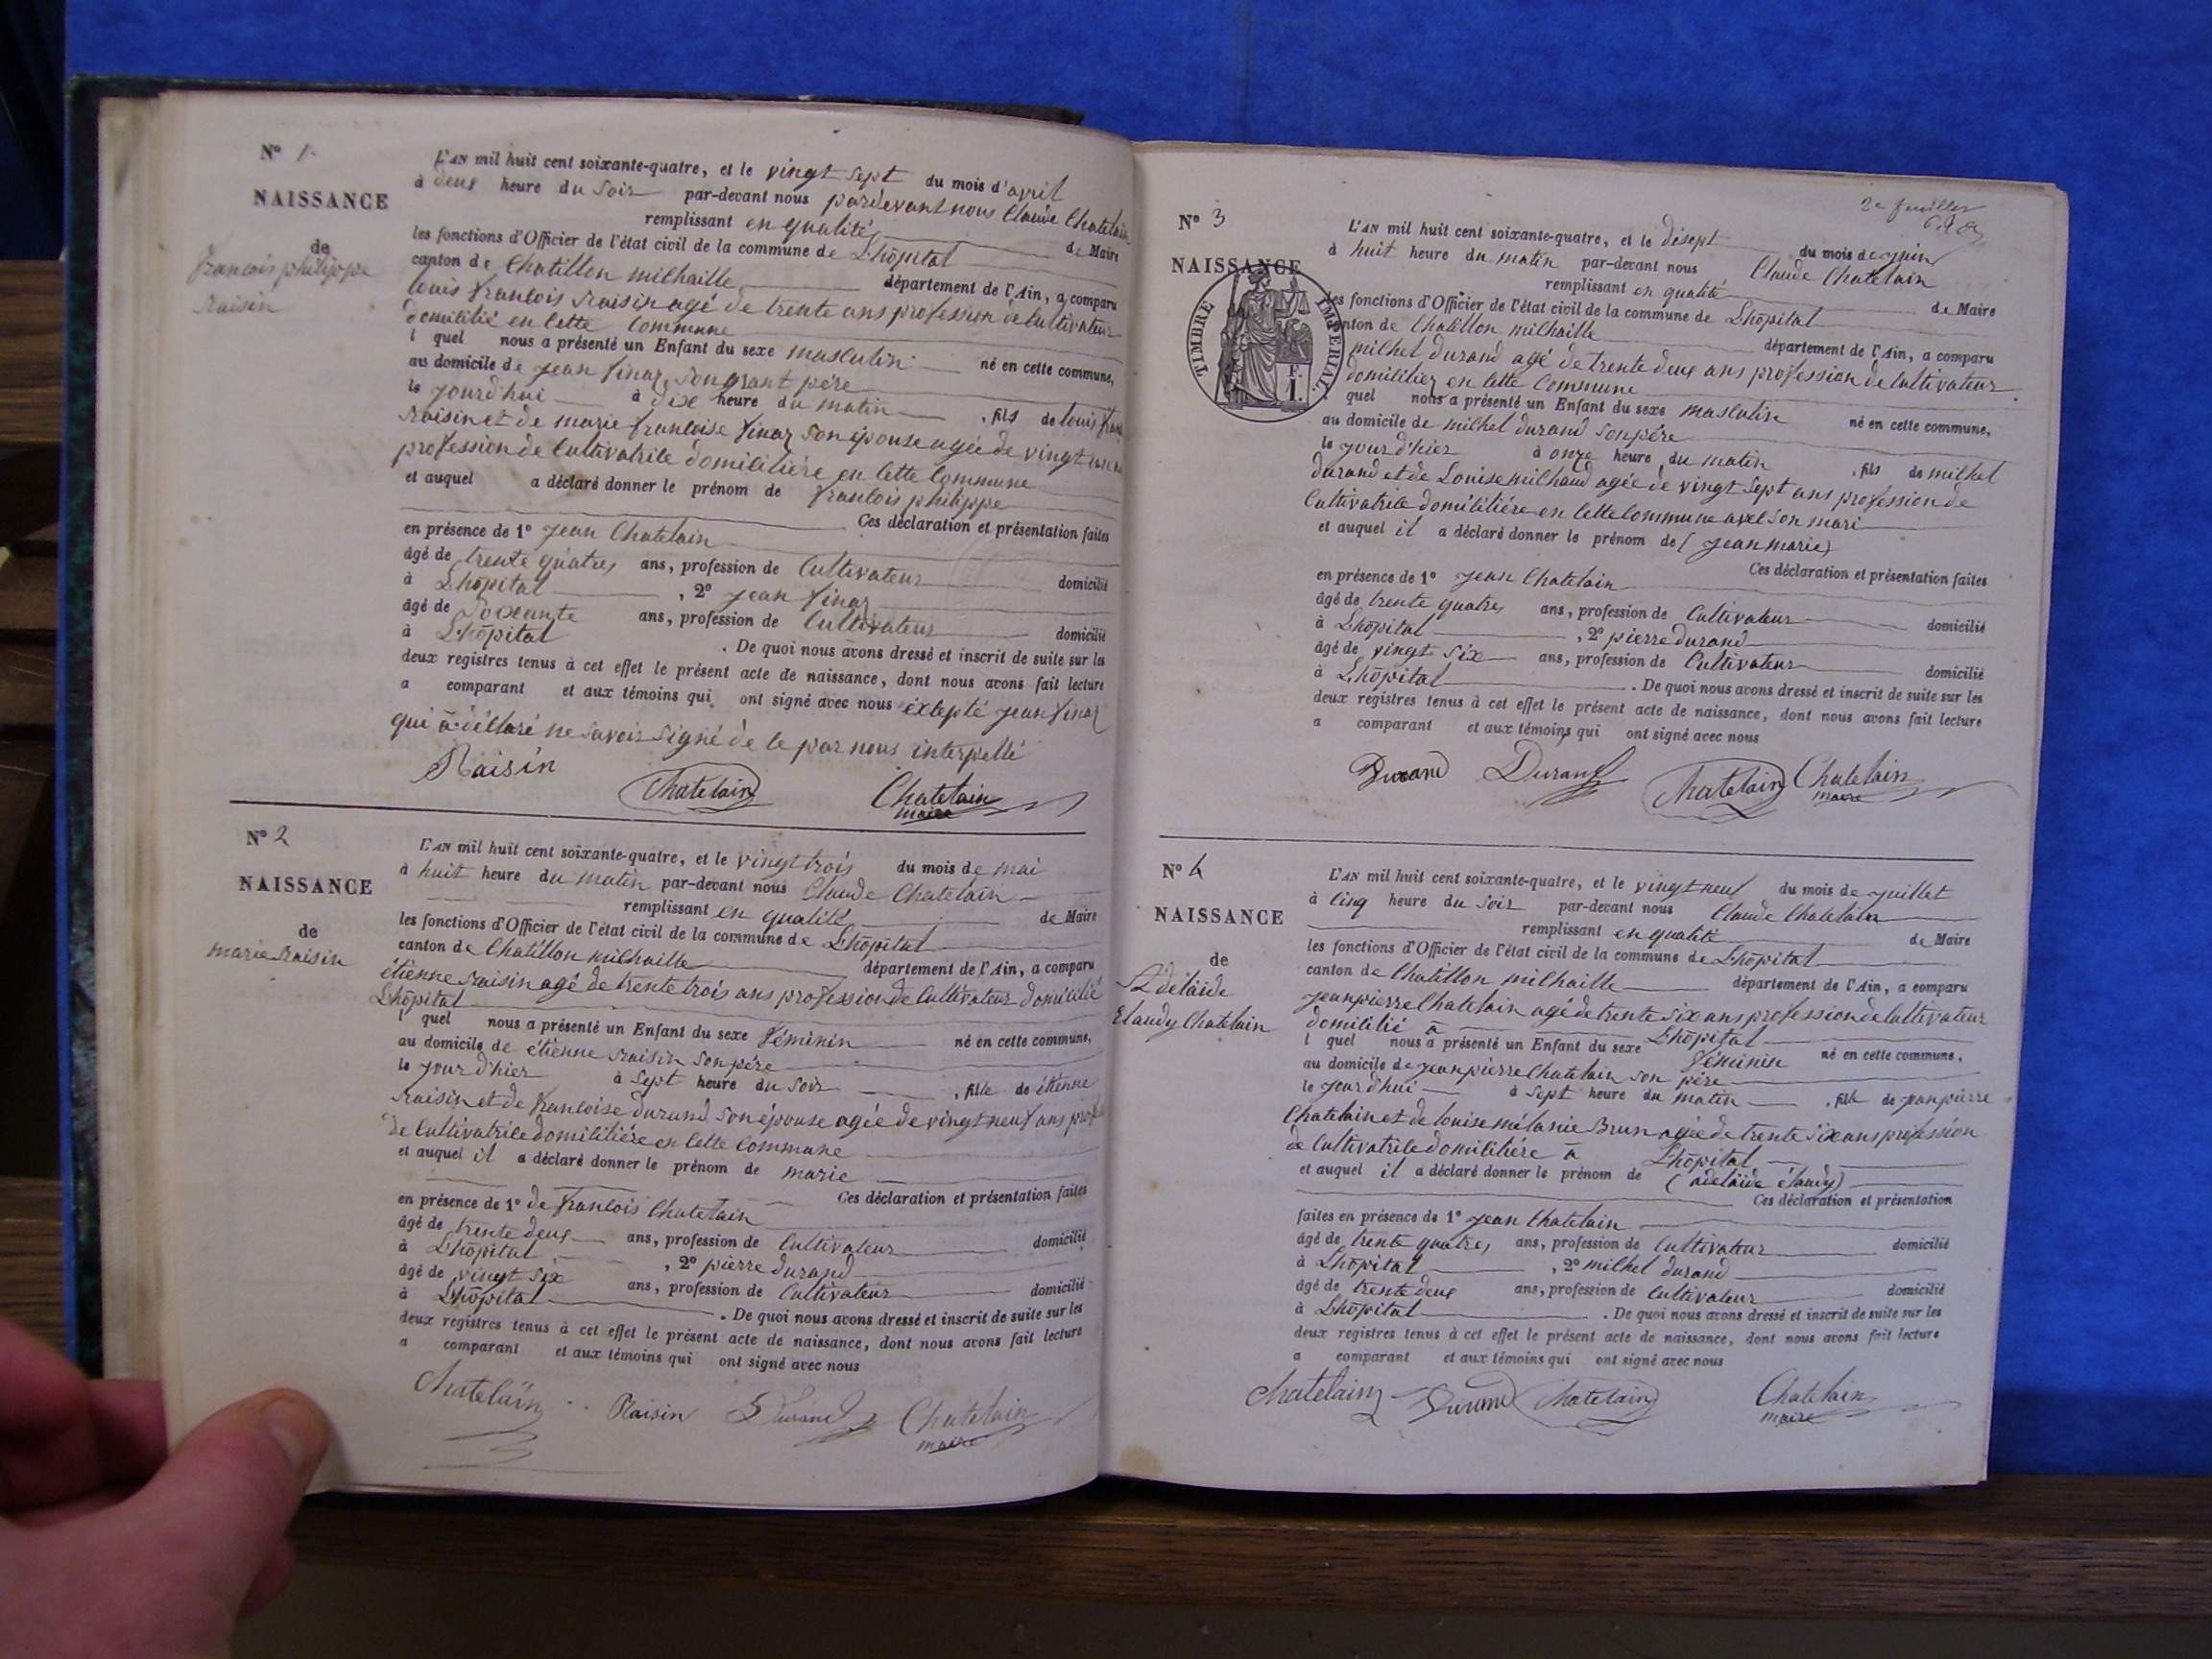 N° 1
NAISSANCE
de
francois philippe
raisin
L'AN mil huit cent soixante-quatre, et le vingt sept du mois d'avril
à deux heure du soir par-devant nous pardevant nous Claude Chatelain
remplissant en qualité de Maire
les fonctions d'Officier de l'état civil de la commune de Lhôpital
canton de Chatillon michaille département de l'Ain, a comparu
louis francois raisin agé de trente ans profession de Cultivateur
domicilié en cette Commune
l quel nous a présenté un Enfant du sexe masculin né en cette commune,
au domicile de jean finaz son grant père
le jourd'hui à dix heure du matin , fils de louis
raisin et de marie francoise finaz son épouse agée de vingt
profession de Cultivatrice domicilière en cette Commune
et auquel a déclaré donner le prénom de francois philippe
Ces déclaration et présentation faites
en présence de 1° jean Chatelain
âgé de trente quatres ans, profession de Cultivateur domicilié
à Lhôpital , 2° jean finaz
âgé de Soixante ans, profession de Cultivateur domicilié
à Lhôpital . De quoi nous avons dressé et inscrit de suite sur les
deux registres tenus à cet effet le présent acte de naissance, dont nous avons fait lecture
a comparant et aux témoins qui ont signé avec nous excepté jean finaz
qui à déclaré ne savoir signé de ce par nous interpellé
Raisin Chatelain Chatelain
maire
N° 2
NAISSANCE
de
marie raisin
L'AN mil huit cent soixante-quatre, et le vingt trois du mois de mai
à huit heure du matin par-devant nous Claude Chatelain
remplissant en qualité de Maire
les fonctions d'Officier de l'état civil de la commune de Lhôpital
canton de Chatillon michaille département de l'Ain, a comparu
étienne raisin agé de trente trois ans profession de Cultivateur domicilié
Lhôpital
l quel nous a présenté un Enfant du sexe féminin né en cette commune,
au domicile de étienne raisin son père
le jour d'hier à sept heure du soir , fille de étienne
raisin et de francoise durand son épouse agée de vingt neuf ans
de Cultivatrice domicilière en cette Commune
et auquel il a déclaré donner le prénom de marie
Ces déclaration et présentation faites
en présence de 1° de francois Chatelain
âgé de trente deux ans, profession de Cultivateur domicilié
à Lhôpital , 2° pierre durand
âgé de vingt six ans, profession de Cultivateur domicilié
à Lhôpital . De quoi nous avons dressé et inscrit de suite sur les
deux registres tenus à cet effet le présent acte de naissance, dont nous avons fait lecture
a comparant et aux témoins qui ont signé avec nous
Chatelain Raisin Durand Chatelain
maire
2e feuillet
N° 3
NAISSANCE
TIMBRE IMPÉRIAL
L'AN mil huit cent soixante-quatre, et le disept du mois de juin
à huit heure du matin par-devant nous Claude Chatelain
remplissant en qualité de Maire
les fonctions d'Officier de l'état civil de la commune de Lhôpital
canton de Chatillon michaille département de l'Ain, a comparu
michel durand agé de trente deux ans profession de Cultivateur
domicilier en cette Commune
quel nous a présenté un Enfant du sexe masculin né en cette commune,
au domicile de michel durand son père
le jour d'hier à onze heure du matin , fils de michel
durand et de Louise michaud agée de vingt sept ans profession de
Cultivatrice domicilière en cette Commune avec son mari
et auquel il a déclaré donner le prénom de (jean marie)
Ces déclaration et présentation faites
en présence de 1° jean Chatelain
âgé de trente quatres ans, profession de Cultivateur domicilié
à Lhôpital , 2° pierre durand
âgé de vingt six ans, profession de Cultivateur domicilié
à Lhôpital . De quoi nous avons dressé et inscrit de suite sur les
deux registres tenus à cet effet le présent acte de naissance, dont nous avons fait lecture
a comparant et aux témoins qui ont signé avec nous
Durand Durand Chatelain Chatelain
maire
N° 4
NAISSANCE
de
Adelaide
Claudy Chatelain
L'AN mil huit cent soixante-quatre, et le vingt neuf du mois de juillet
à cinq heure du soir par-devant nous Claude Chatelain
remplissant en qualité de Maire
les fonctions d'Officier de l'état civil de la commune de Lhôpital
canton de Chatillon michaille département de l'Ain, a comparu
jean pierre Chatelain agé de trente six ans profession de Cultivateur
domicilié à Lhôpital
l quel nous a présenté un Enfant du sexe féminin né en cette commune,
au domicile de jean pierre Chatelain son père
le jour d'hui à sept heure du matin , fille de jean pierre
Chatelain et de louise mélanie Brun agée de trente six ans profession
de Cultivatrice domicilière à Lhôpital
et auquel il a déclaré donner le prénom de (adelaide claudy)
Ces déclaration et présentation
faites en présence de 1° jean Chatelain
âgé de trente quatres ans, profession de Cultivateur domicilié
à Lhôpital , 2° michel durand
âgé de trente deux ans, profession de Cultivateur domicilié
à Lhôpital . De quoi nous avons dressé et inscrit de suite sur les
deux registres tenus à cet effet le présent acte de naissance, dont nous avons fait lecture
a comparant et aux témoins qui ont signé avec nous
Chatelain Durand Chatelain Chatelain
maire